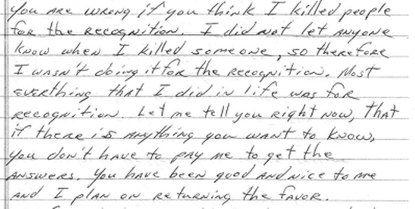 YOU ARE WRONG IF YOU THINK I KILLED PEOPLE
FOR THE RECOGNITION. I DID NOT LET ANYONE
KNOW WHEN I KILLED SOMEONE, SO THEREFORE
I WASN'T DOING IT FOR THE RECOGNITION. MOST
EVERTHING THAT I DID IN LIFE WAS FOR
RECOGNITION. LET ME TELL YOU RIGHT NOW, THAT
IF THERE IS ANYTHING YOU WANT TO KNOW,
YOU DON'T HAVE TO PAY ME TO GET THE
ANSWERS. YOU HAVE BEEN GOOD AND NICE TO ME
AND I PLAN ON RETURNING THE FAVOR.